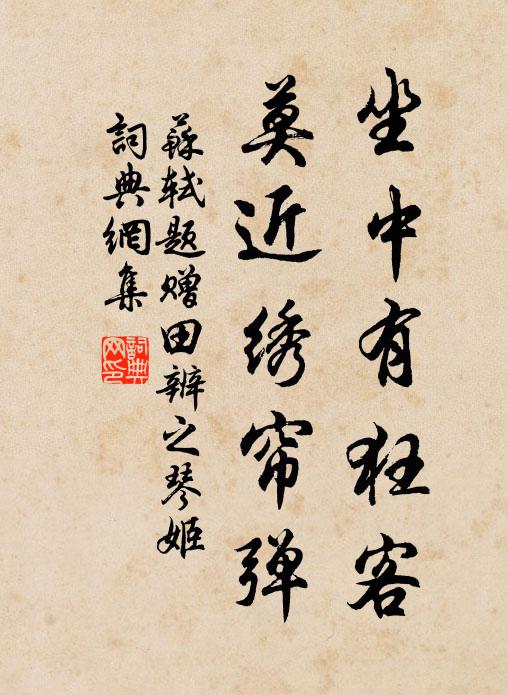 坐中有狂客
莫近绣帘弹
蘇軾题赠田辨之琴姬
詞典網集
詞典
网印